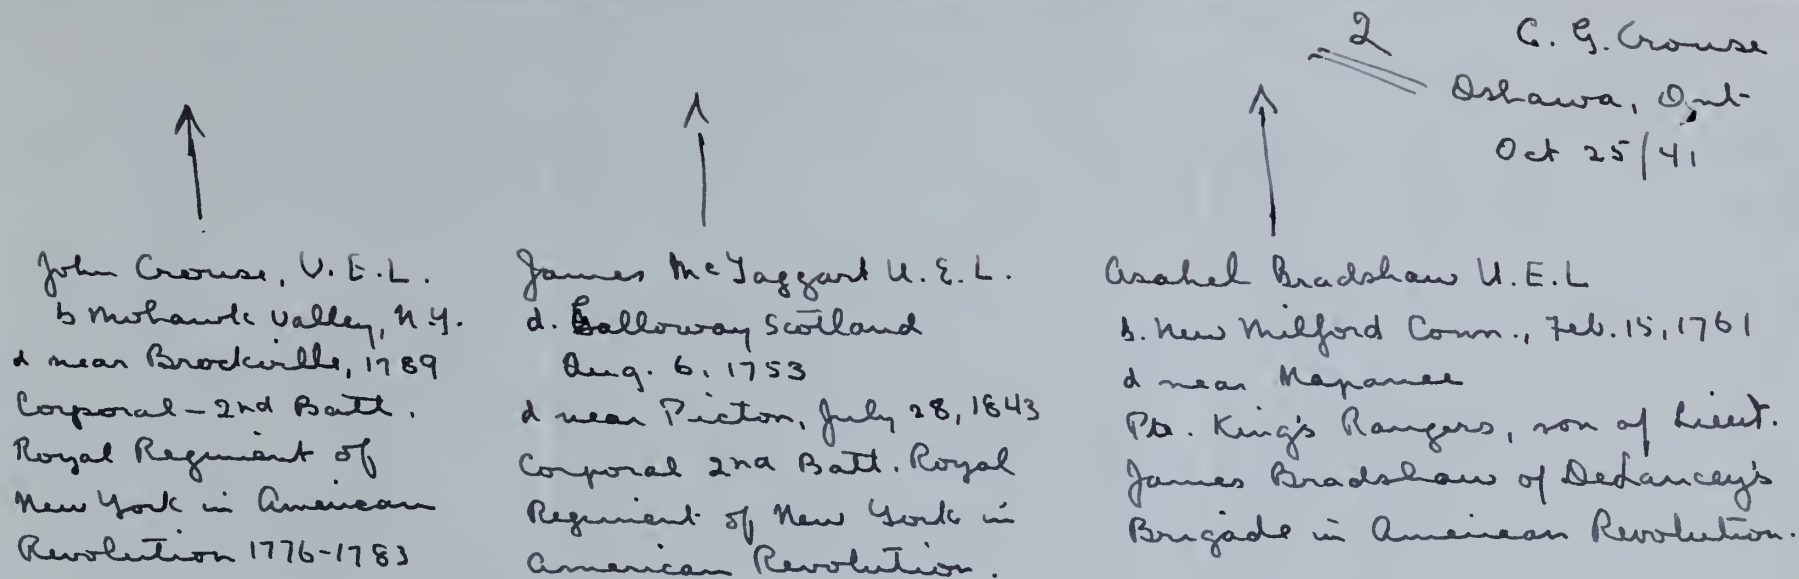 2
C. G. Crouse
Oshawa, Ont
Oct 25/41
John Crouse, U.E.L.
b Mohawk Valley, N.Y.
d near Brockville, 1789
Corporal - 2nd Batt.
Royal Regiment of
New York in American
Revolution 1776-1783
James McTaggart U.E.L.
d. Galloway Scotland
Aug. 6, 1753
d near Picton, July 28, 1843
Corporal 2nd Batt. Royal
Regiment of New York in
American Revolution.
Asahel Bradshaw U.E.L
b. New Milford Conn., Feb. 15, 1761
d near Napanee
Pte. King's Rangers, son of Lieut.
James Bradshaw of DeLancey's
Brigade in American Revolution.